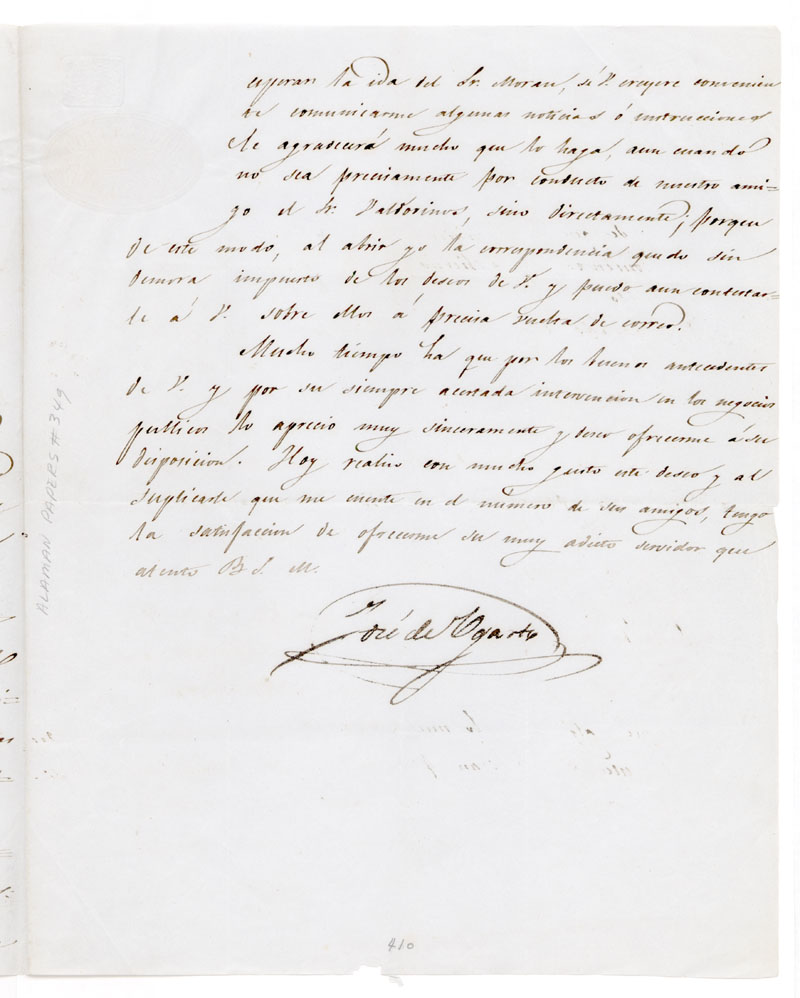 esperar la ida del Sr. Moran, si V. creyere convenien
te comunicarme algunas noticias ó instrucciones
le agradecerá mucho que lo haga, aun cuando
no sea precisamente por conducto de nuestro ami-
go el Sr. Valdovinos, sino directamente; porque
de este modo, al abrir yo la correspondencia quedo sin
demora impuesto de los deseos de V. y puedo aun contestar-
le á V. sobre ellos á precisa vuelta de correo.
Mucho tiempo ha que por los buenos antecedentes
de V. y por su siempre acertada intervencion en los negocios
publicos lo aprecio muy sinceramente y deseo ofrecerme á su
disposicion. Hoy realizo con mucho gusto este deseo y al
suplicarle que me cuente en el número de sus amigos, tengo
la satisfaccion de ofrecerme su muy adicto servidor que
atento B. S. M.
José de Ugarte
ALAMAN PAPERS #349
410